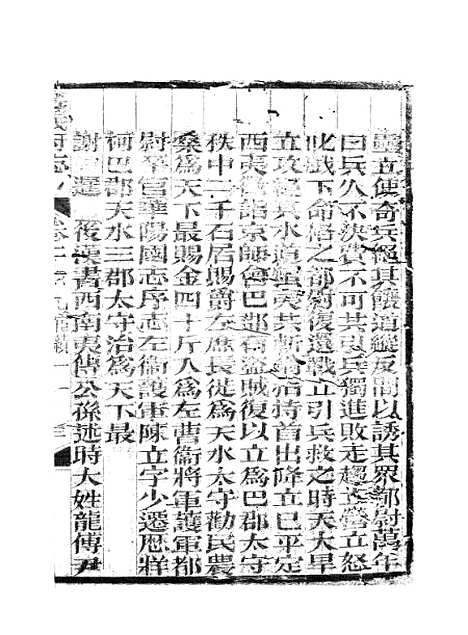 壘立使奇兵絕其饟道縱反間以誘其眾都尉萬年
曰兵久不決費不可共引兵獨進敗走趨立營立怒
叱戲下命格之都尉復還戰立引兵救之時天大旱
立攻絕其水道蠻夷共斬翁指持首出降立已平定
西夷徵詣京師會巴郡有盜賊復以立爲巴郡太守
秩中二千石居賜爵左庶長徙爲天水太守勸民農
桑爲天下最賜金四十斤入爲左曹衞將軍護軍都
尉卒官華陽國志序志左衞護軍陳立字少遷歷牂
柯巴郡天水三郡太守治爲天下最
謝暹 後漢書西南夷傳公孫述時大姓龍傅尹
義府志 卷二十九宦績一